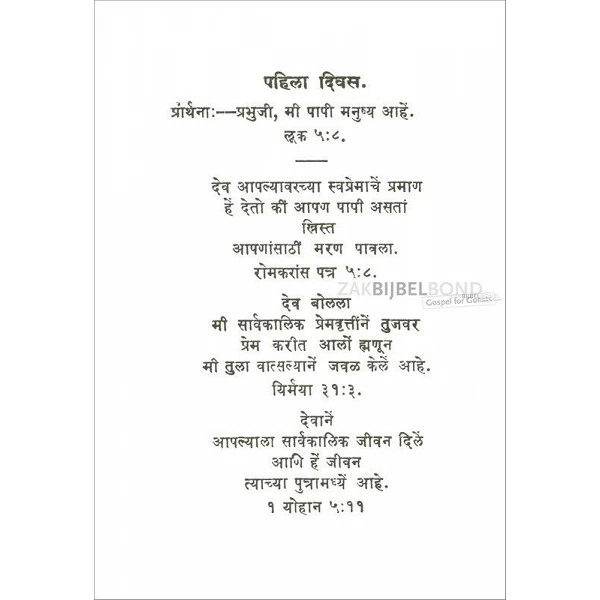 पहिला दिवस.
प्रार्थना:—–प्रभुजी, मी पापी मनुष्य आहें.
लूक ५:८.
देव आपल्यावरच्या स्वप्रेमाचें प्रमाण
हें देतो कीं आपण पापी असतां
ख्रिस्त
आपणांसाठीं मरण पावला.
रोमकरांस पत्र ५:८.
ZAKBIJBELBOND
Gospel for Guests
देव बोलला
मी सार्वकालिक प्रेमवृत्तीनें तुजवर
प्रेम करीत आलों ह्मणून
मी तुला वात्सल्यानें जवळ केलें आहे.
यिर्मया ३१:३.
देवानें
आपल्याला सार्वकालिक जीवन दिलें
आणि हें जीवन
त्याच्या पुत्रामध्यें आहे.
१ योहान ५:११